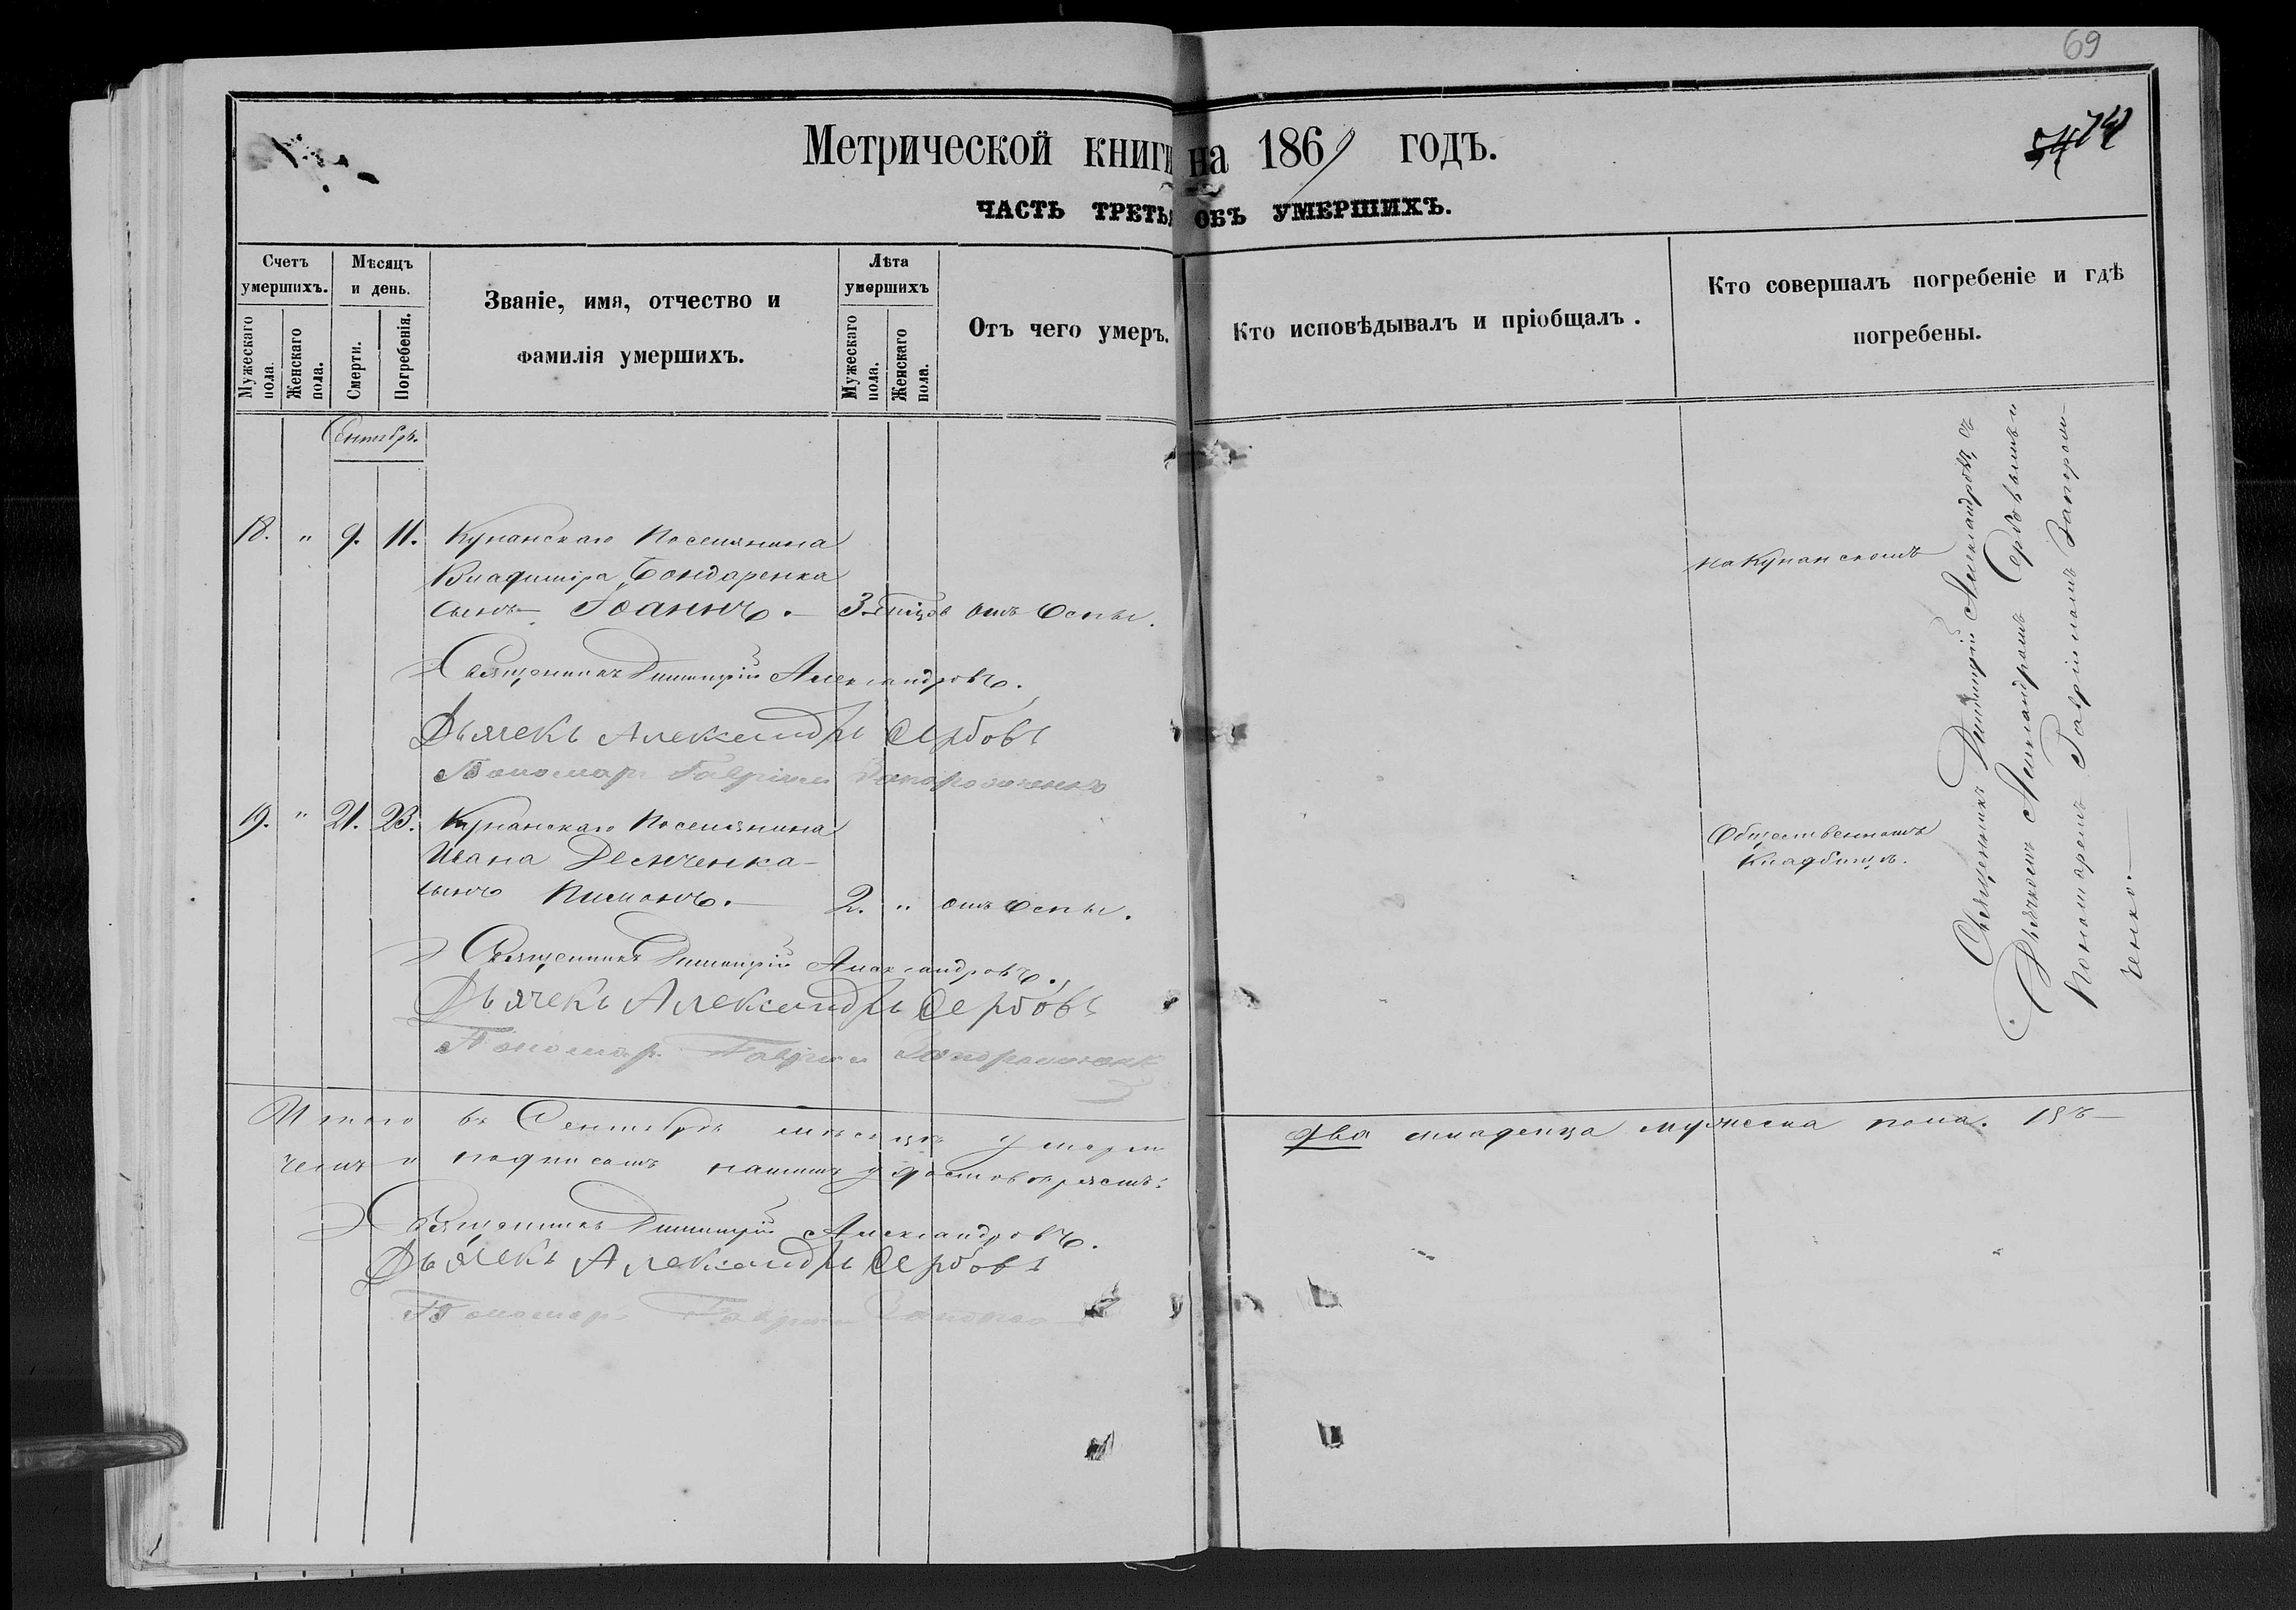 69
Метрической книги на 1869 годъ.
74
ЧАСТЬ ТРЕТЬЯ ОБЪ УМЕРШИХЪ.
Счетъ умершихъ.
Мужескаго пола.
Женскаго пола.
Мѣсяцъ и день.
Смерти.
Погребенія.
Званіе, имя, отчество и
фамилія умершихъ.
Лѣта умершихъ
Мужескаго пола.
Женскаго пола.
Отъ чего умеръ.
Кто исповѣдывалъ и пріобщалъ.
Кто совершалъ погребеніе и гдѣ
погребены.
Сентябрь.
18. " 9. 11. Кунанскаго Поселянина
Владиміра Бондаренка
сынъ Іоаннъ. — 3. отъ Оспы.
Священникъ Димитрій Александровъ.
Дьячекъ Александръ Сербовъ
Пономарь Гавріилъ Запорожченко
19. " 21. 23. Кунанскаго Поселянина
Ивана Демченка
сынъ Пименъ. — 2. " отъ Оспы.
Священникъ Димитрій Александровъ.
Дьячекъ Александръ Сербовъ
Пономарь Гавріилъ Запорожченк
Итого въ Сентябрѣ мѣсяцѣ умерло два младенца мужеска пола. въ
чемъ и подписомъ нашимъ удостовѣряемъ:
Священникъ Димитрій Александровъ.
Дьячекъ Александръ Сербовъ
Пономарь Гавріилъ
на Кунанскомъ
Общественномъ
Кладбищѣ.
Священникъ Димитрій Александровъ, съ
Дьячкомъ Александромъ Сербовымъ и
Пономаремъ Гавріиломъ Запорож-
ченко.